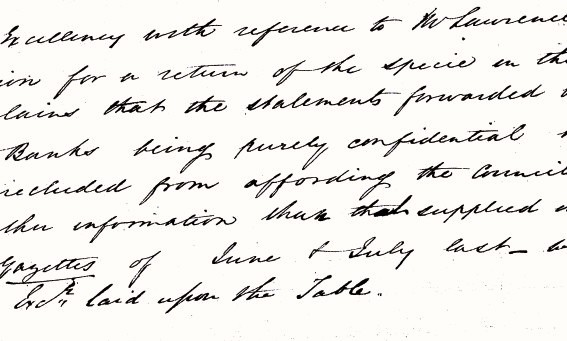 Excellency with reference to Mr Lawrence
ion for a return of the specie in the
lains that the statements forwarded
Banks being purely confidential
recluded from affording the Council
ther information than that supplied
Gazettes of June & July last - 
Excy laid upon the Table.